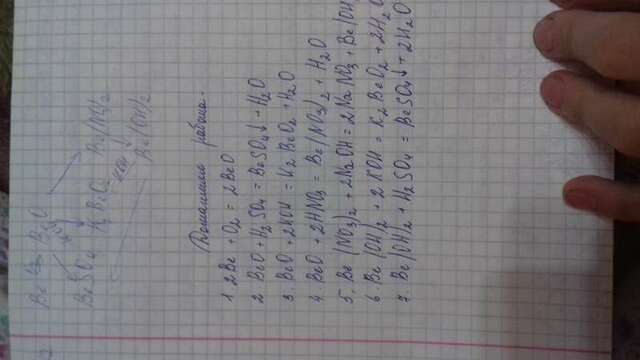 Be → BeO
BeSO4 K2BeO2 Be(NO3)2
Be(OH)2
Домашняя работа.
1 2Be + O2 = 2BeO
2 BeO + H2SO4 = BeSO4↓ + H2O
3 BeO + 2KOH = K2BeO2 + H2O
4. BeO + 2HNO3 = Be(NO3)2 + H2O
5. Be(NO3)2 + 2NaOH = 2NaNO3 + Be(OH
6. Be(OH)2 + 2KOH = K2BeO2 + 2H2O
7. Be(OH)2 + H2SO4 = BeSO4↓ + 2H2O